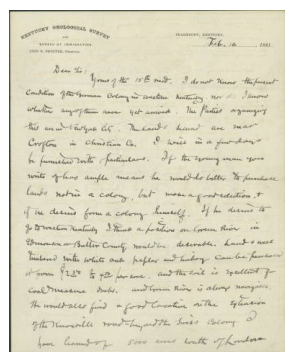 KENTUCKY GEOLOGICAL SURVEY
AND
BUREAU OF IMMIGRATION
JOHN R. PROCTER, Director.
FRANKFORT, KENTUCKY,
Feb. 1883.
Dear Sir:
Yours of the 15th inst. I do not know the present
condition of the German Colony in western Kentucky nor do I know
whether any of them have yet arrived. The Parties organizing
this are in The lands are near
Crofton in Christian Co. I will in a few days
be furnished with particulars. If the young man you
write of has ample means he would do better to purchase
lands not in a colony, but near a good station, &
if he desires form a colony himself. If he desires to
go to western Kentucky I think a position on Green River in
or Butler County would be desirable. Land
timbered with white oak poplar and hickory can be purchased
at from per acre. and the soil is excellent for
coal measure soils. and Green River is always navigable.
He would also find a good location on the extension
of the road beyond the Swiss Colony. I
have of 5000 acres south of London